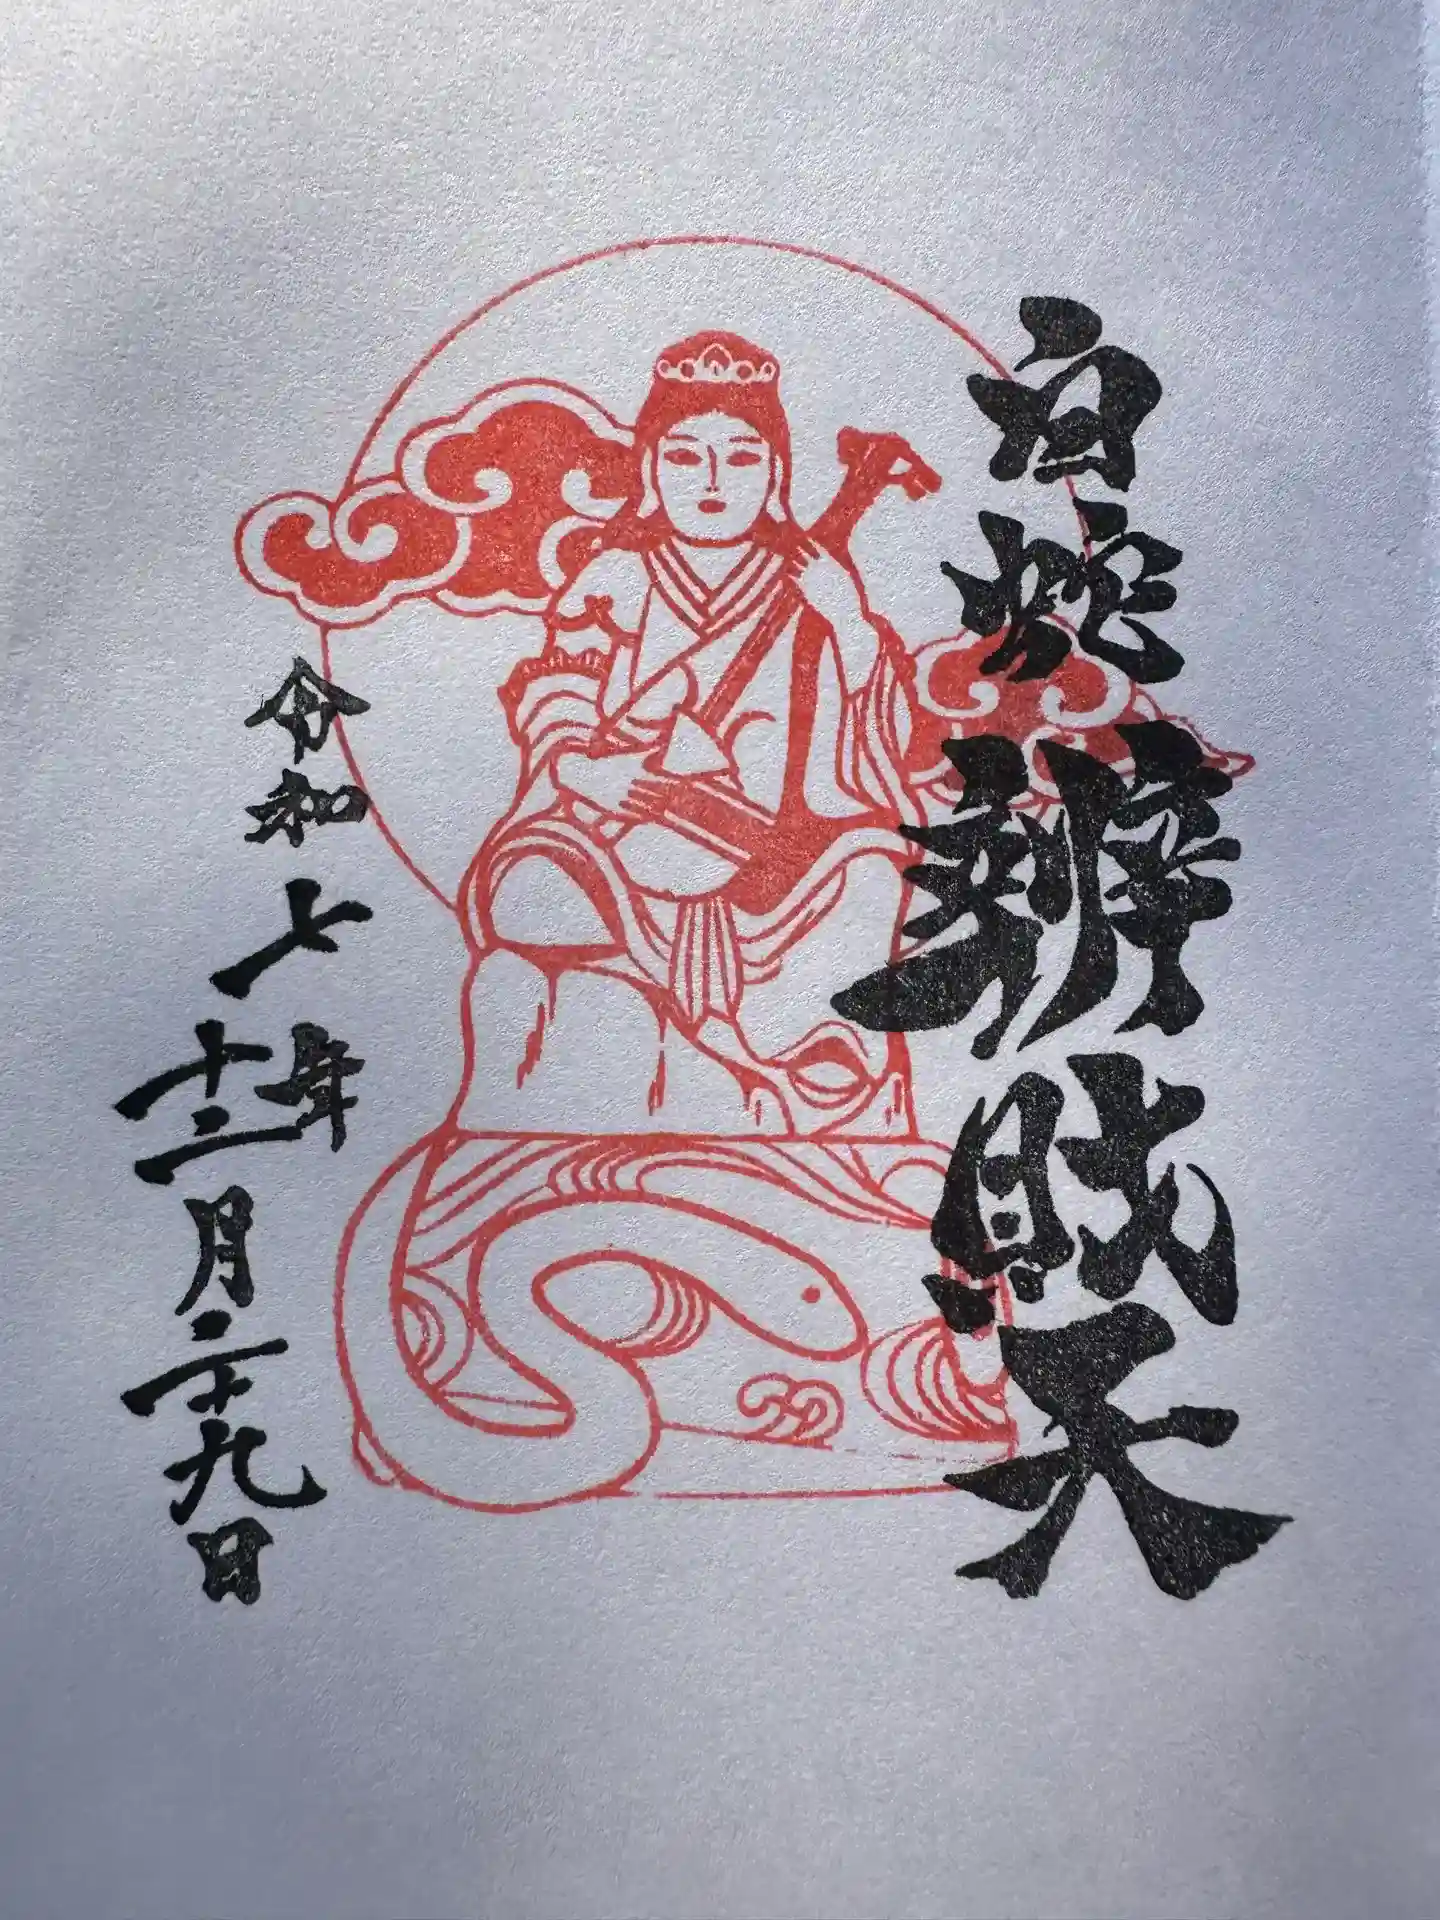 白蛇辨財天
令和七年
十二月二十九日